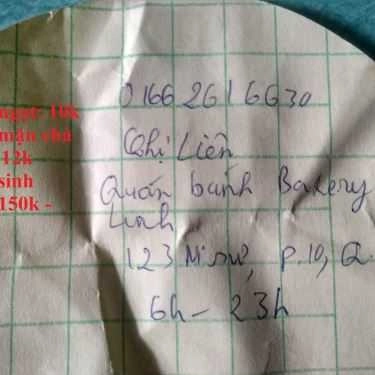 01662616630
Chị Liên
Quán bánh Bakery
Linh
123 P.10, Q.
6h - 23h
ngọt: 10k
mặn chà
12k
sinh
150k -